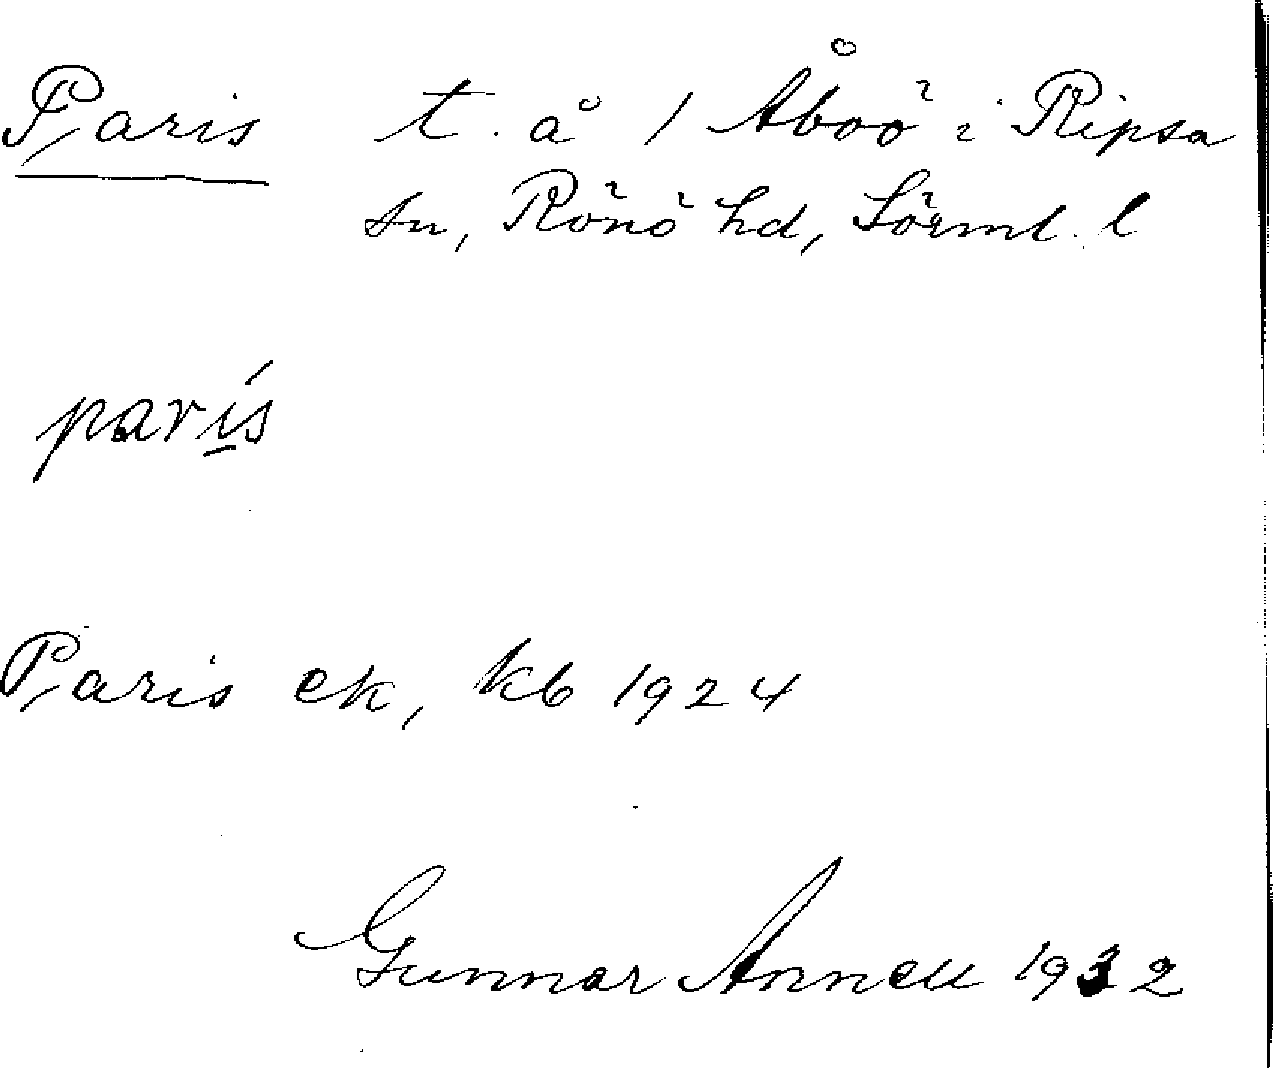 Paris t. å 1 Åboö i Ripsa
sn, Rönö hd, Sörml. l
parís
Paris ek, kb 1924
Gunnar Annell 1932